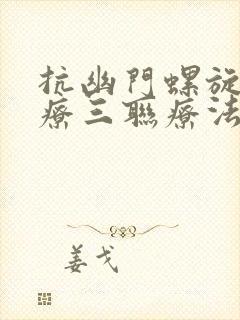 抗幽門螺旋
療三聯療法
姜戈